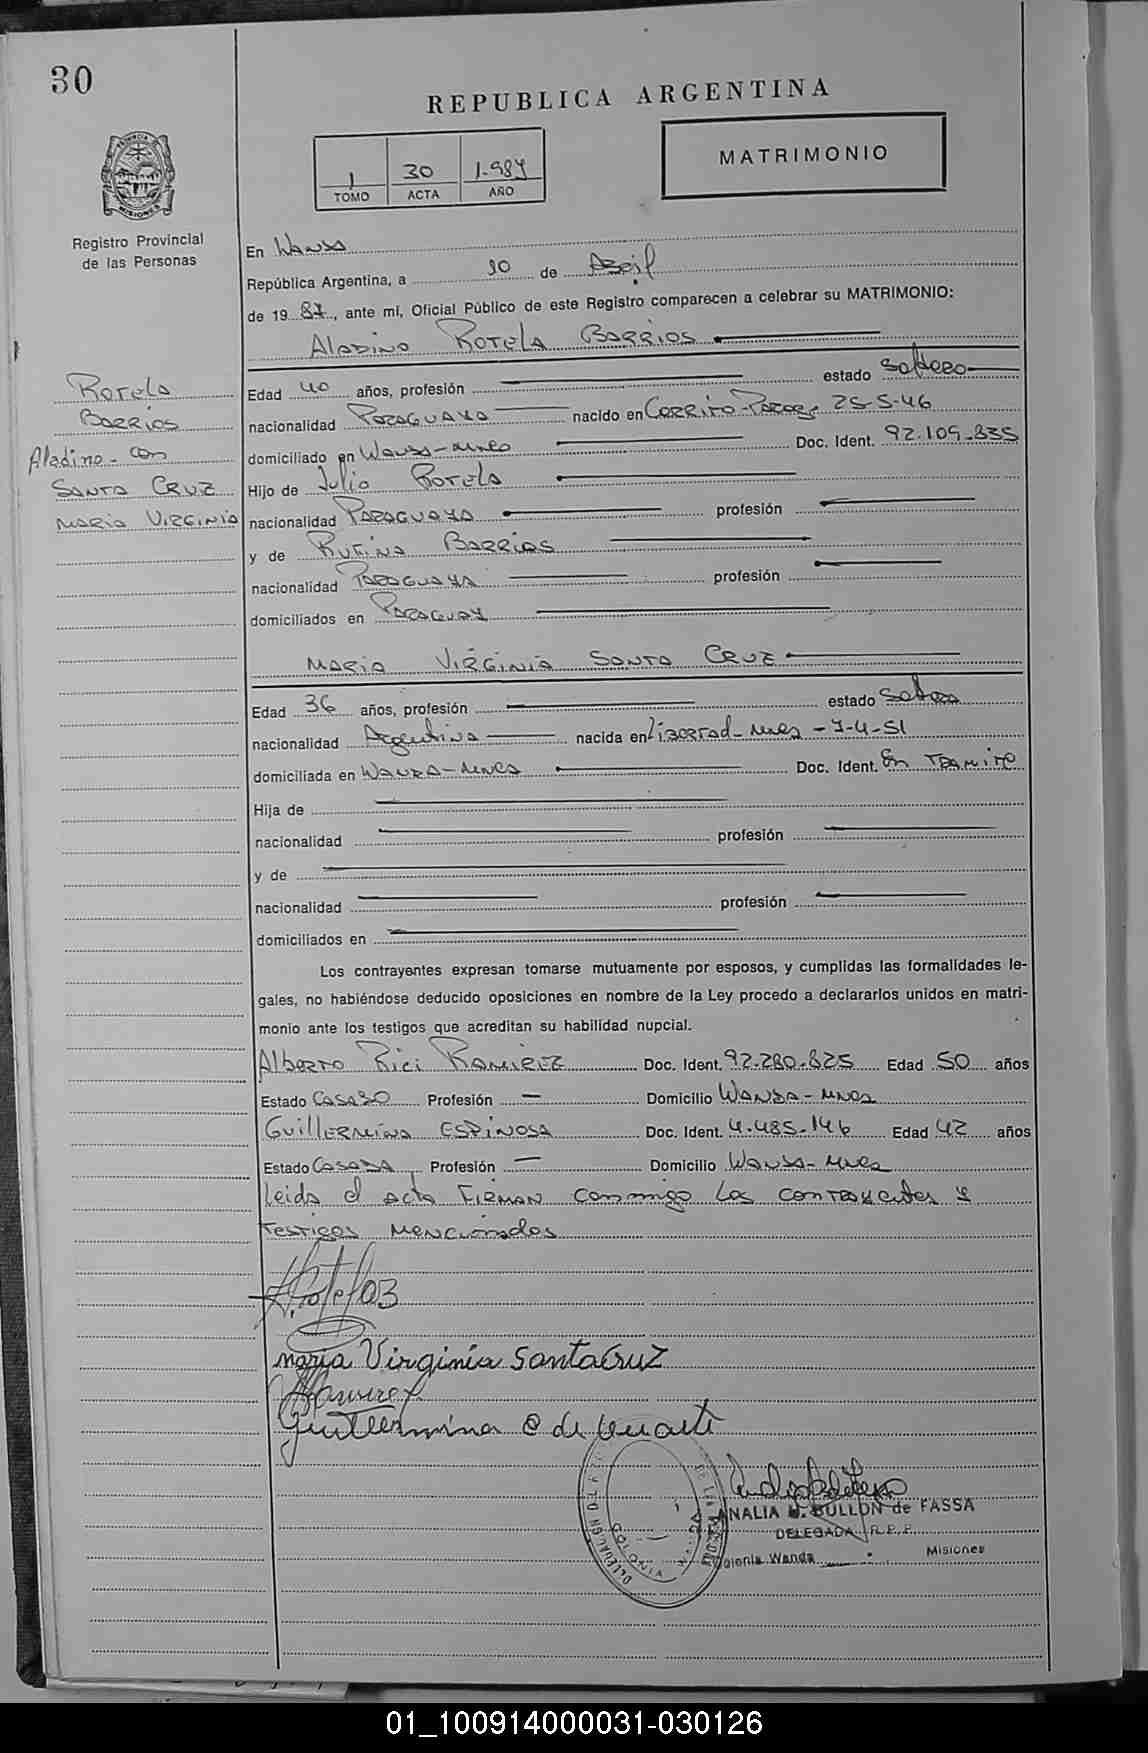 30
REPUBLICA ARGENTINA
MATRIMONIO
1 30 1.987
TOMO ACTA AÑO
PROVINCIA DE MISIONES
Registro Provincial
de las Personas
En Wanda
República Argentina, a 30 de Abril
de 1987, ante mí, Oficial Público de este Registro comparecen a celebrar su MATRIMONIO:
Aladino Rotela Barrios
Rotela
Barrios
Aladino - con
Santa Cruz
Maria Virginia
Edad 40 años, profesión estado soltero
nacionalidad Paraguaya nacido en Cerrito - 25-5-46
domiciliado en Wanda-Mnes Doc. Ident. 92.109.835
Hijo de Julio Rotela
nacionalidad Paraguaya profesión
y de Rufina Barrios
nacionalidad Paraguaya profesión
domiciliados en Paraguay
Maria Virginia Santa Cruz
Edad 36 años, profesión estado soltera
nacionalidad Argentina nacida en Libertad - Mnes - 7-4-51
domiciliada en Wanda-Mnes Doc. Ident. En Tramite
Hija de
nacionalidad profesión
y de
nacionalidad profesión
domiciliados en
Los contrayentes expresan tomarse mutuamente por esposos, y cumplidas las formalidades le-
gales, no habiéndose deducido oposiciones en nombre de la Ley procedo a declararlos unidos en matri-
monio ante los testigos que acreditan su habilidad nupcial.
Alberto Rici Ramirez Doc. Ident. 92.280.825 Edad 50 años
Estado Casado Profesión — Domicilio Wanda - Mnes
Guillermina Espinosa Doc. Ident. 4.485.146 Edad 42 años
Estado Casada Profesión — Domicilio Wanda - Mnes
Leida el acta Firman conmigo los contrayentes y
testigos mencionados
A. RotelaB
maria Virginia SantaCruz
ARamirez
Guillermina E de Duarte
ANALIA M. BULLON de FASSA
DELEGADA R.P.P.
Colonia Wanda Misiones
01_100914000031-030126